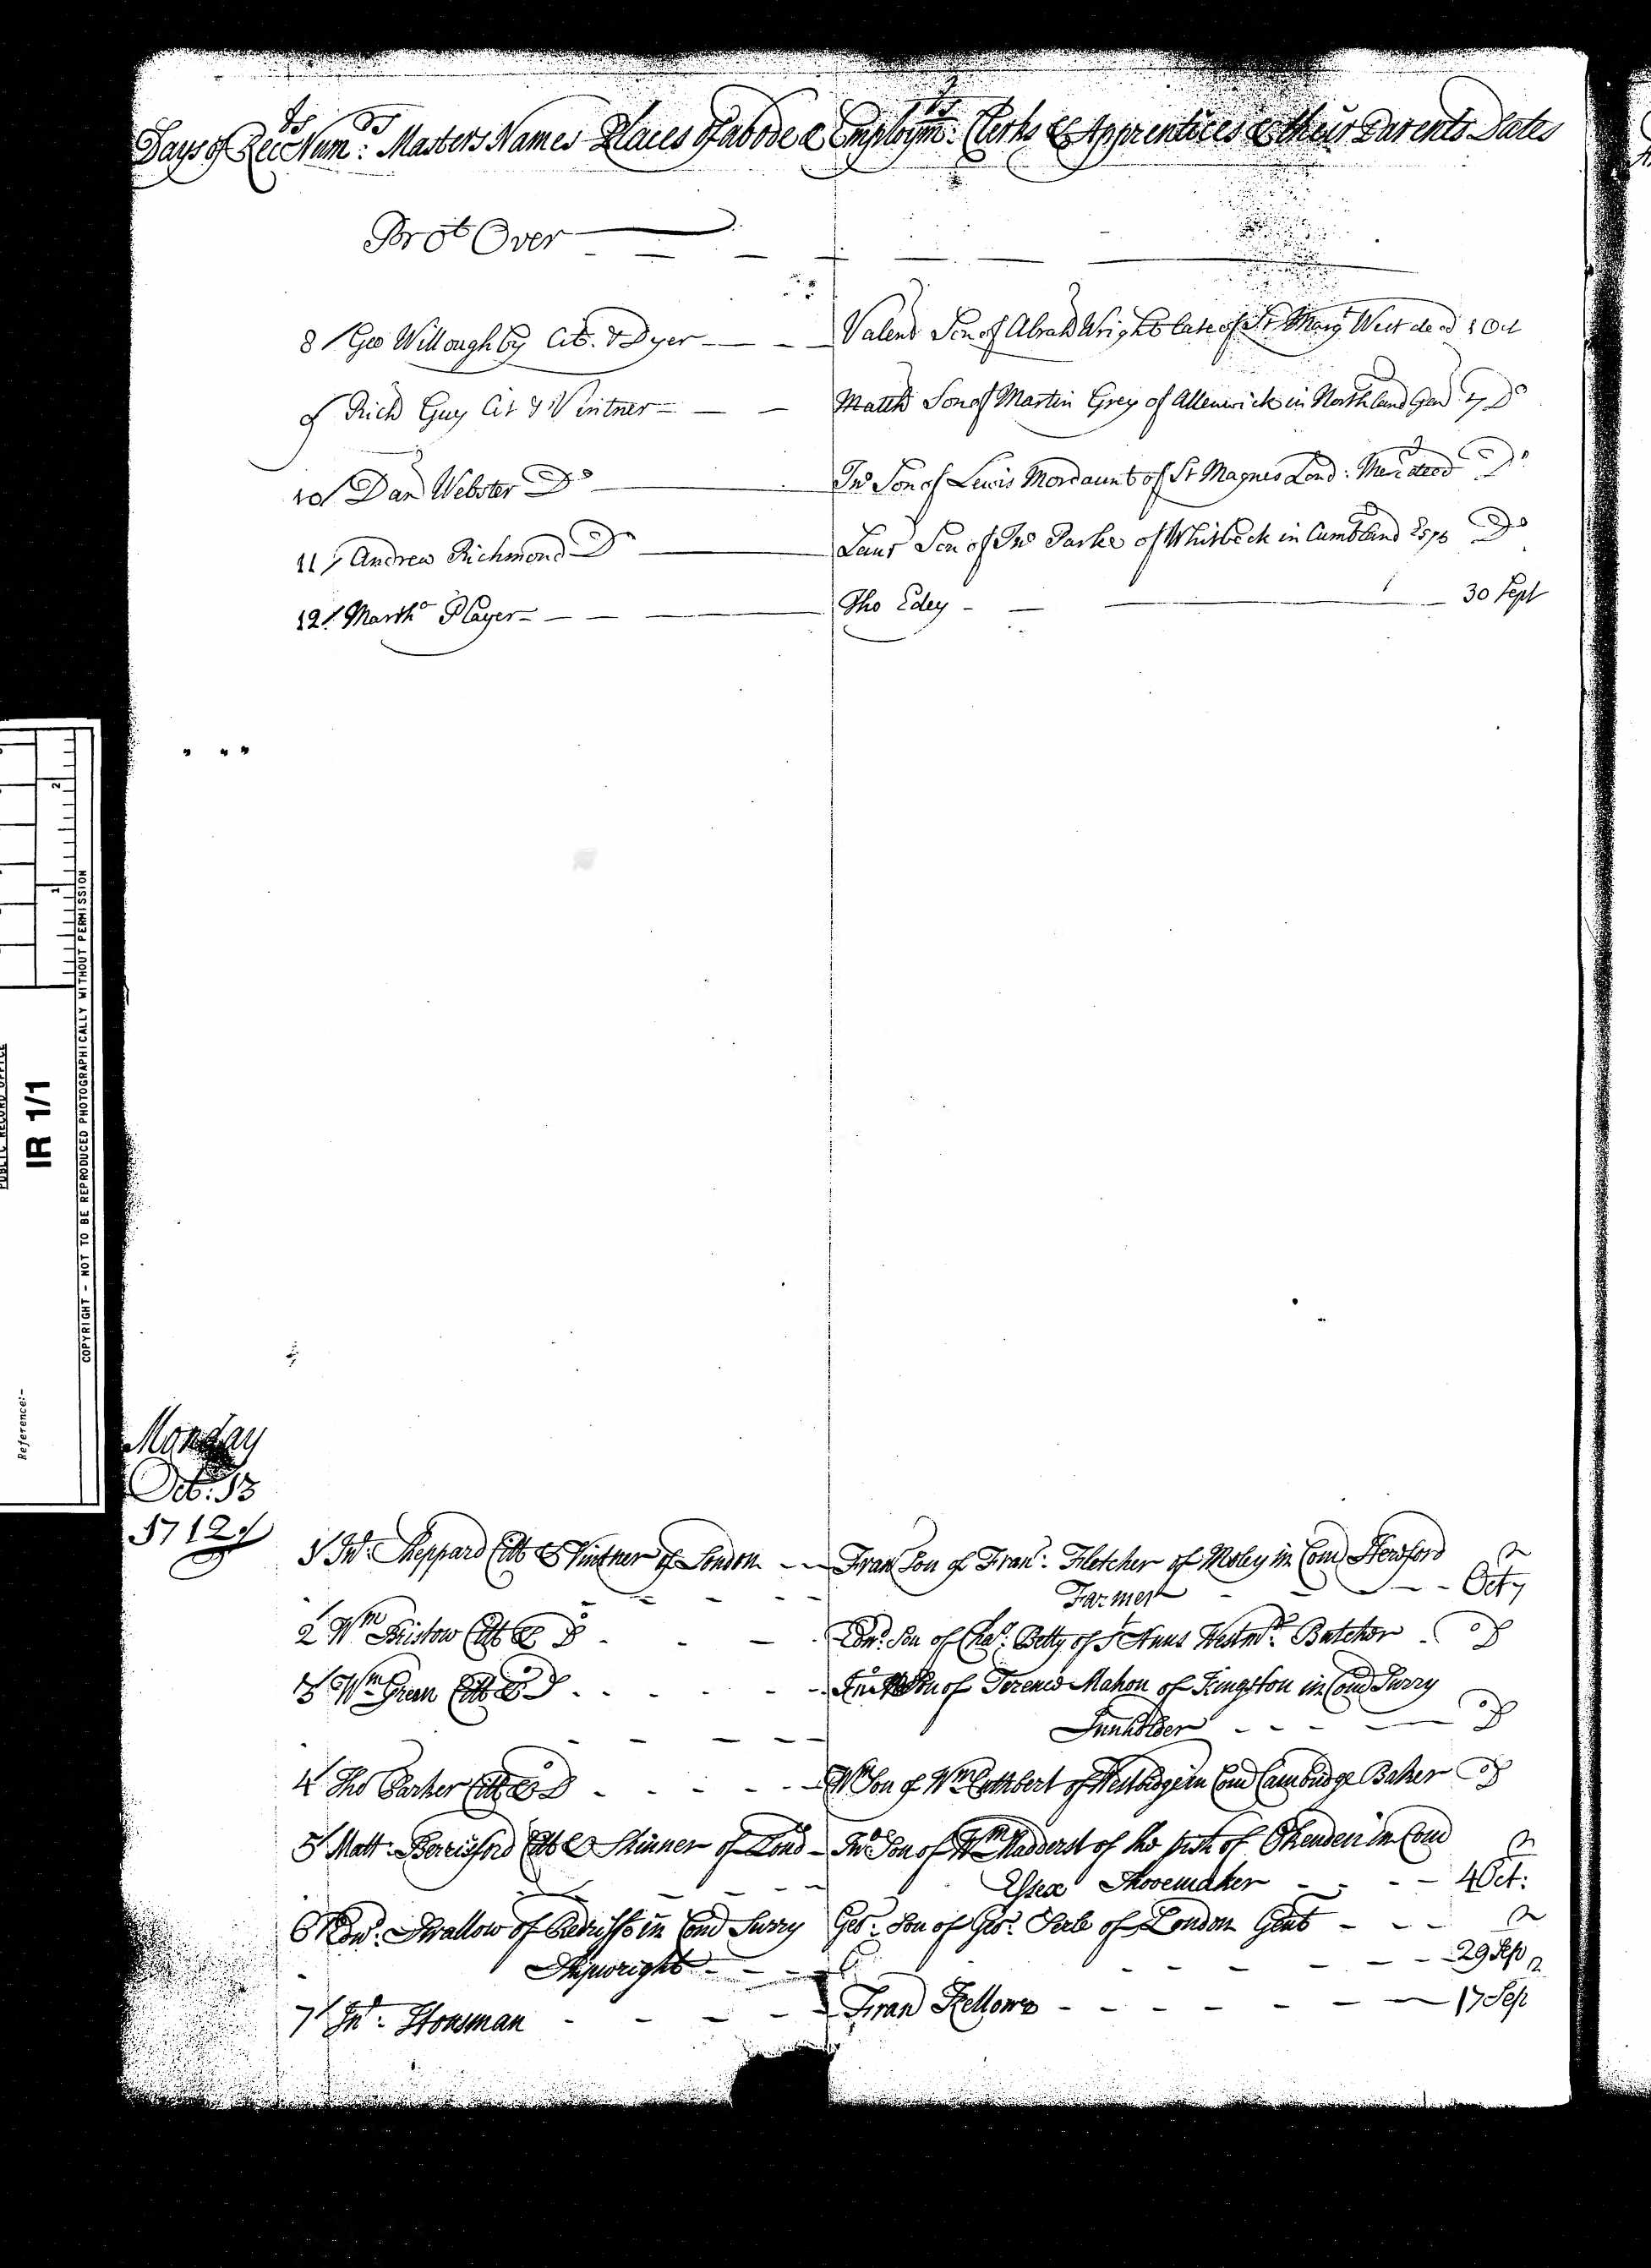 Days of Rects Num:rs Masters Names Places of abode & Employmts: Clerks & Apprentices & their Parents Dates
Brot Over
8 Geo Willoughby Cit. & Dyer Valend Son of Abrah Wright late of St Marg West decd 1 Oct
9 Rich Guy Cit & Vintner Matth Son of Martin Grey of Allenwick in Northland Gen 7 Do
10 Dan Webster Do Jno Son of Lewis Mordaunt of St Magnes Lond: Mer decd Do
11 Andrew Richmond Do Laur Son of Jno Parke of Whitbeck in Cumbland Do
12 Marth Player Tho Edey 30 Sept
Monday
Oct: 13
1712
1 Jno: Sheppard Citt & Vintner of London Fran Son of Fran: Fletcher of in Com Hereford
Farmer Oct 7
2 Wm Bristow Citt & Do Edwd Son of Chas: Betty of St Anns Westmr: Butcher Do
3 Wm Green Citt & Do Son of Terence Mahon of Kingston in Com Surry
Innholder Do
4 Tho Parker Citt & Do Wm Son of Wm Cuthbert of in Com Cambridge Baker Do
5 Matt: Berrisford Citt & Skinner of Lond Jno Son of Wm of the prsh of Okenden in Com
Essex Shoemaker 4 Oct:
6 Edwd: Swallow of Redriffe in Com Surry Geo: Son of Geo: of London Gent
Shipwright 29 Sep
7 Jno: Housman Fran Fellows 17 Sep
PUBLIC RECORD OFFICE
IR 1/1
Reference:-
COPYRIGHT - NOT TO BE REPRODUCED PHOTOGRAPHICALLY WITHOUT PERMISSION
1
2